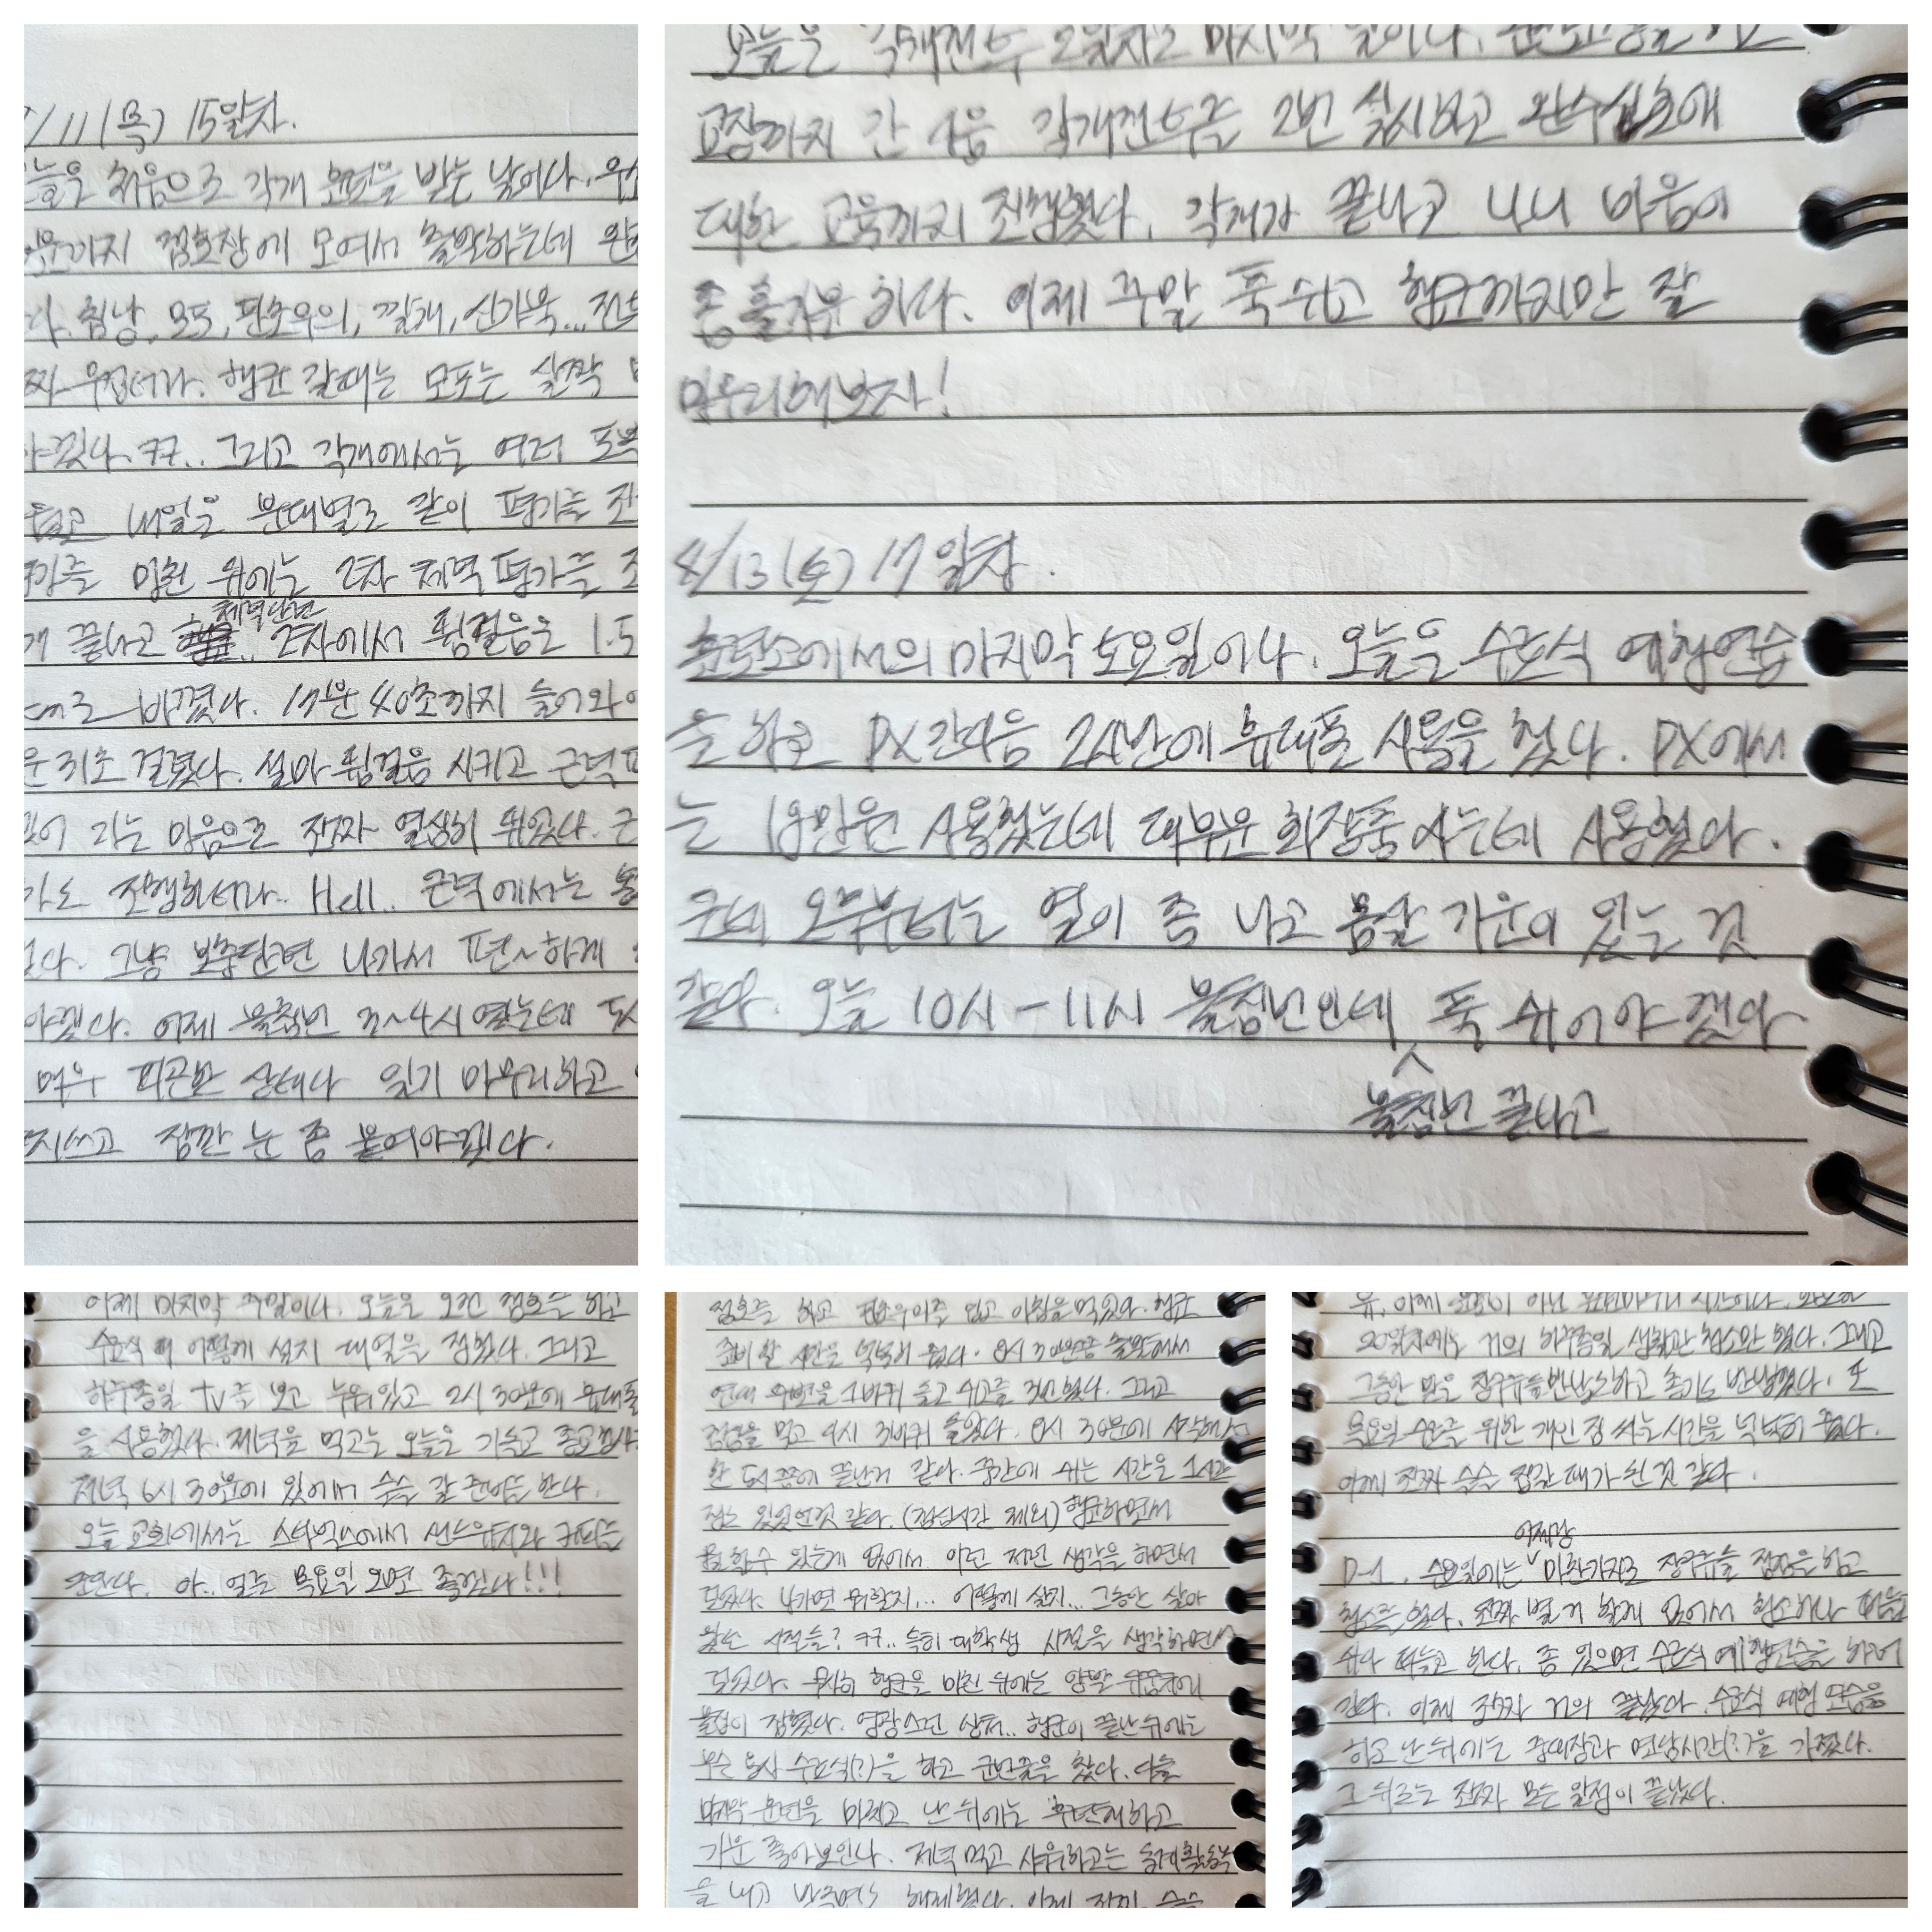 /11(목) 15일차.
늘은 처음으로 각개 훈련을 받는 날이다.
까지 점호장에 모여서 출발하는데
침낭, 모포, 판초우의, 깔개, 신가목... 전투
무겁더라. 행군 갈때는 모포는 살짝
야겠다.ㅋㅋ.. 그리고 각개에서는 여러
내일은 분대별로 같이 평가를
마친 뒤에는 2차 체력평가를
끝나고 체력단련 2차에서 뜀걸음은 1.5
바꼈다. 17분 40초까지 들어와야
걸렸다. 설마 뜀걸음 시키고 근력
라는 마음으로 진짜 열심히 뛰었다.
진행하더라.. Hell.. 근력에서는
그냥 보충단련 나가서 편~하게
야겠다. 어제 불침번 3~4시 였는데
매우 피곤한 상태다 일기 마무리하고
쓰고 잠깐 눈 좀 붙여야겠다.
오늘은 각개전투 2일차고 마지막 날이다.
교장까지 간 다음 각개전투를 2번 실시하고
대한 교육까지 진행했다. 각개가 끝나고 나니 마음이
좀 홀가분 하다. 이제 주말 푹 쉬고 행군까지만 잘
마무리해보자!
4/13(토) 17일차.
훈련소에서의 마지막 토요일이다. 오늘은 수료식 예행연습
을 하고 PX간다음 2시반에 휴대폰 사용을 했다. PX에서
는 18만원 사용했는데 대부분 화장품 사는데 사용했다.
근데 오후부터는 열이 좀 나고 몸살 기운이 있는 것
같다. 오늘 10시-11시 불침번인데 푹 쉬어야 겠다
불침번 끝나고
이제 마지막 주말이다. 오늘은 오전 점호를 하고
수료식 때 어떻게 설지 대열을 정했다. 그리고
하루종일 tv를 보고 누워있고 2시 30분에 휴대폰
을 사용했다. 저녁을 먹고는 오늘은 기독교 종교행사
저녁 6시 30분에 있어서 슬슬 갈 준비를 한다.
오늘 교회에서는 스타벅스에서 샌드위치와 커피를
준단다. 아.. 얼른 목요일 오면 좋겠다!!!
점호를 하고 판초우의를 입고 아침을 먹었다. 행군
준비 할 시간은 넉넉히 줬다. 8시 30분쯤 출발해서
연대 주변을 1바퀴 돌고 그리고
점심을 먹고 다시 3바퀴 돌았다. 8시 30분에 시작해서
한 5시 쯤에 끝난거 같다. 중간에 쉬는 시간은 1시간
정도 있었던것 같다. (점심시간 제외) 행군하면서
할 수 있는게 없어서 이런 저런 생각을 하면서
걸었다. 나가면 뭐할지... 어떻게 살지... 그동안 살아
왔던 시절들? ㅋㅋ.. 특히 대학생 시절을 생각하면서
걸었다. 무사히 행군을 마친 뒤에는 양발 뒤꿈치에
물집이 잡혔다. 영광스런 상처.. 행군이 끝난 뒤에는
무슨 용사 수료식(?)을 하고 군번줄을 찼다. 다들
마지막 훈련을 마치고 난 뒤에는 후련해하고
기분 좋아보인다. 저녁 먹고 샤워하고는
20일차에는 거의 하루종일 생활관 청소만 했다. 그리고
그동안 받은 장구류들 반납도 하고 총기도 반납했다. 또
목요일 수료를 위한 개인 짐 싸는 시간을 넉넉히 줬다.
이제 진짜 슬슬 집갈 때가 된 것 같다.
어제랑
D-1. 수요일에는 마찬가지로 장구류들 점검을 하고
청소를 했다. 진짜 별 거 할게 없어서 청소하다 떠들고
쉬다 떠들고 한다. 좀 있으면 수료식 예행연습을 하러
간다. 이제 진짜 거의 끝났다. 수료식 예행 연습을
하고 난 뒤에는 중대장과 면담시간(?)을 가졌다.
그 뒤로는 진짜 모든 일정이 끝났다.